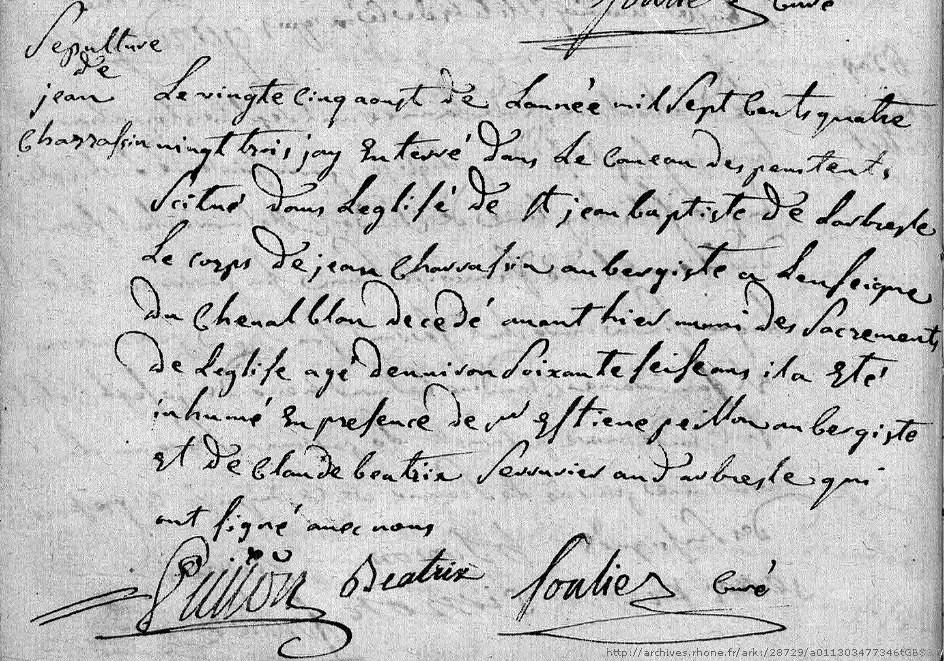 curé
Sepulture
de
jean
Charrassin
Le vingte cinq aoust de Lannée mil Sept Cents quatre
vingt trois jay Enterré dans Le Caueau des penitents
Scitué dans Leglise de St jean baptiste de Larbresle
Le corps de jean Charrassin aubergiste a Lenseigne
du Cheual blan decedé auant hier muni des Sacrements
de Leglise agé denuiron Soixante seise ans il a Eté
inhumé En presence de sr Estiene peillon aubergiste
Et de Claude beatrix Serrurier aud arbresle qui
ont signé auec nous
Peillon Beatrix Soulier Curé
http://archives.rhone.fr/ark:/28729/a011303477346tGBS